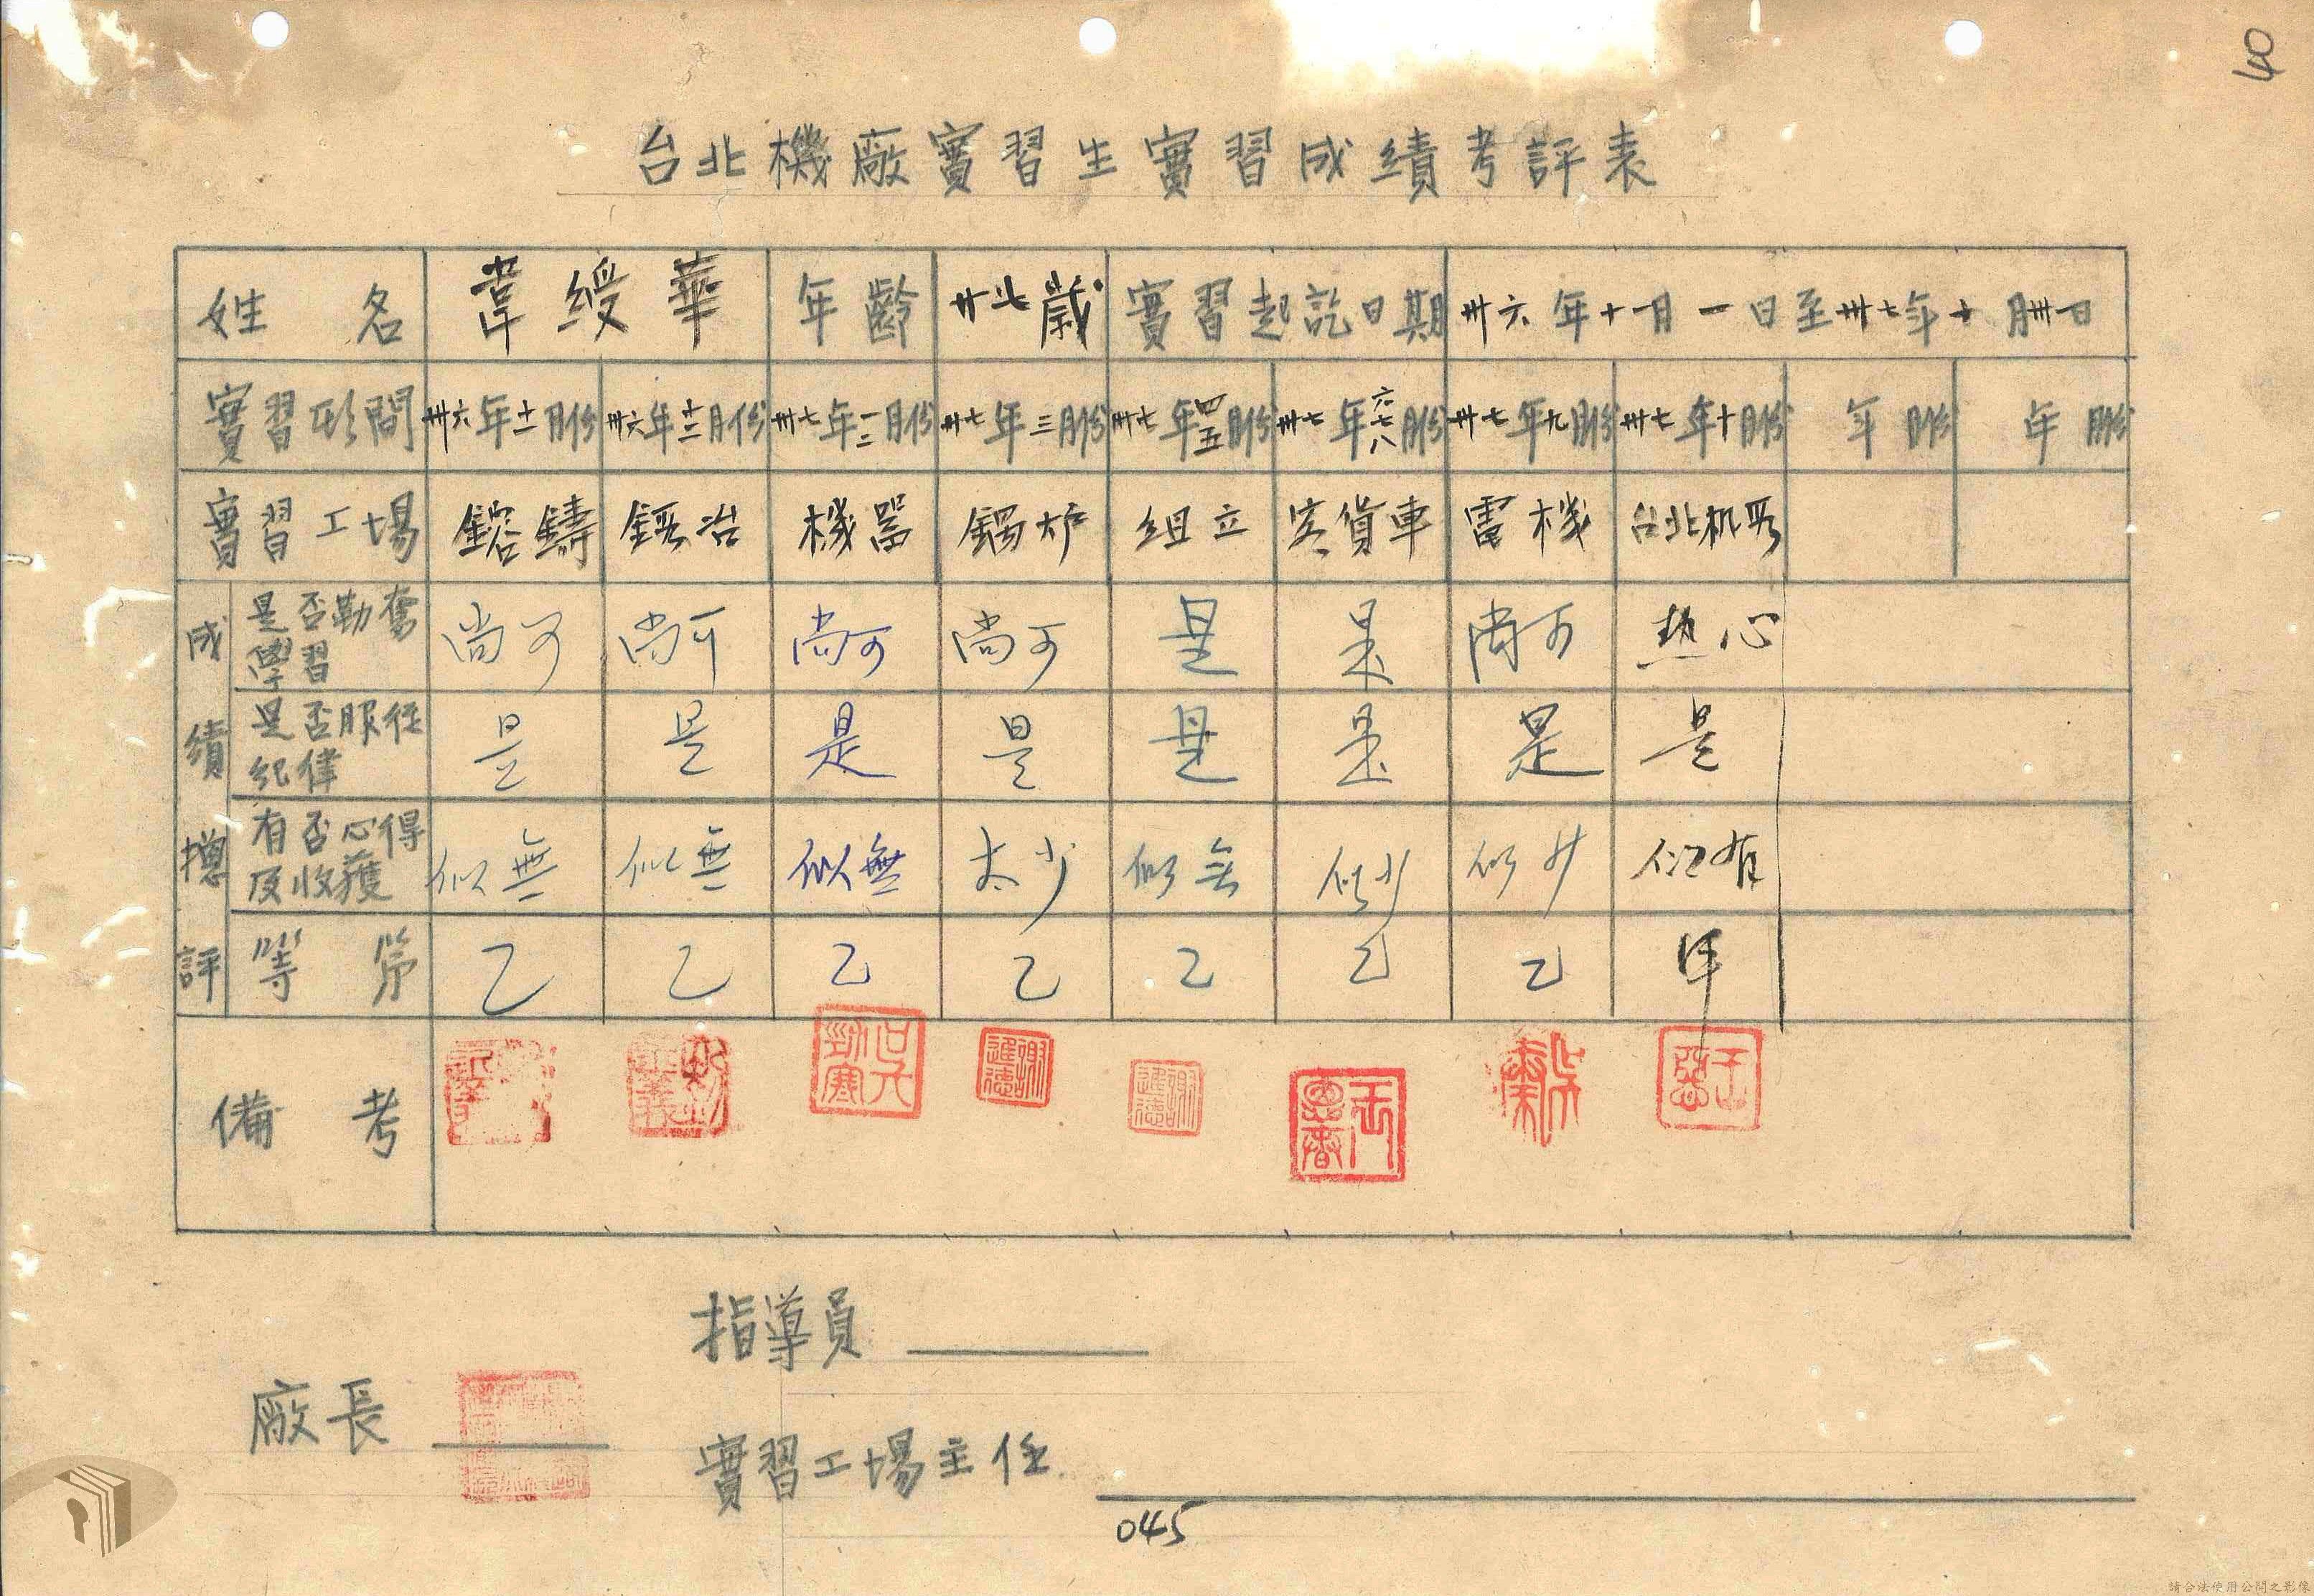 40
台北機廠實習生實習成績考評表
姓名 韋綬華 年齡 廿七歲 實習起訖日期 卅六年十一月一日至卅七年十月卅一日
實習期間 卅六年十一月份 卅六年十二月份 卅七年一二月份 卅七年三月份 卅七年四五月份 卅七年六七八月份 卅七年九月份 卅七年十月份 年 月份 年 月份
實習工場 鎔鑄 鍛冶 機器 鍋炉 組立 客貨車 電機 台北机段
成績總評
是否勤奮學習 尚可 尚可 尚可 尚可 是 是 尚可 热心
是否服從紀律 是 是 是 是 是 是 是 是
有否心得及收獲 似無 似無 似無 太少 似無 似少 似少 似有
等第 乙 乙 乙 乙 乙 乙 乙 甲
備考
謝進德 謝進德
指導員
廠長
實習工場主任
045
請合法使用公開之影像